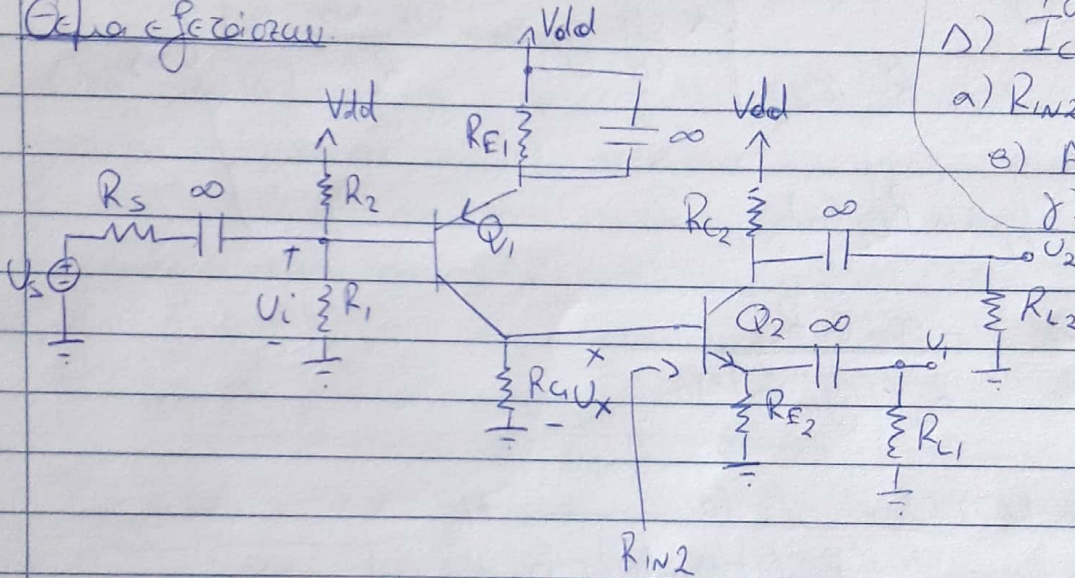 Θέμα εξετάσεων
Vdd
Δ) I_C
a) R_IN2
Vdd
Vdd
R_E1
∞
β) A
R_S
∞
R_2
R_C2
∞
γ)
Q_1
U_2
U_S
+
U_i
-
R_1
Q_2
∞
R_L2
U_1
R_C1
U_x
-
R_E2
R_L1
R_IN2